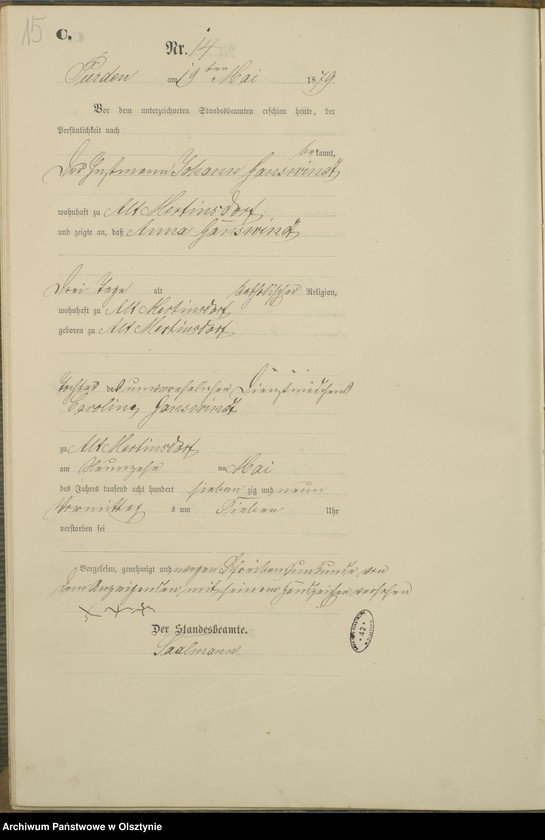 15
C.
Nr. 14
Purden am 19ten Mai 1879
Vor dem unterzeichneten Standesbeamten erschien heute, der
Persönlichkeit nach
bekannt,
Der Instmann Johann Ganswindt
wohnhaft zu Alt Mertinsdorf
und zeigte an, daß Anna Ganswindt
Drei Tage alt katholischer Religion,
wohnhaft zu Alt Mertinsdorf
geboren zu Alt Mertinsdorf
Tochter des unverehelichten Dienstmädchens
Caroline Ganswindt
zu Alt Mertinsdorf
am Neunzehn ten Mai
des Jahres tausend acht hundert sieben zig und neun
Vormittags um Sieben Uhr
verstorben sei
Vorgelesen, genehmigt und wegen Schreibensunkunde von
dem Anzeigenden mit seinem Handzeichen versehen
+++
Der Standesbeamte.
Saalmann
42
Archiwum Państwowe w Olsztynie